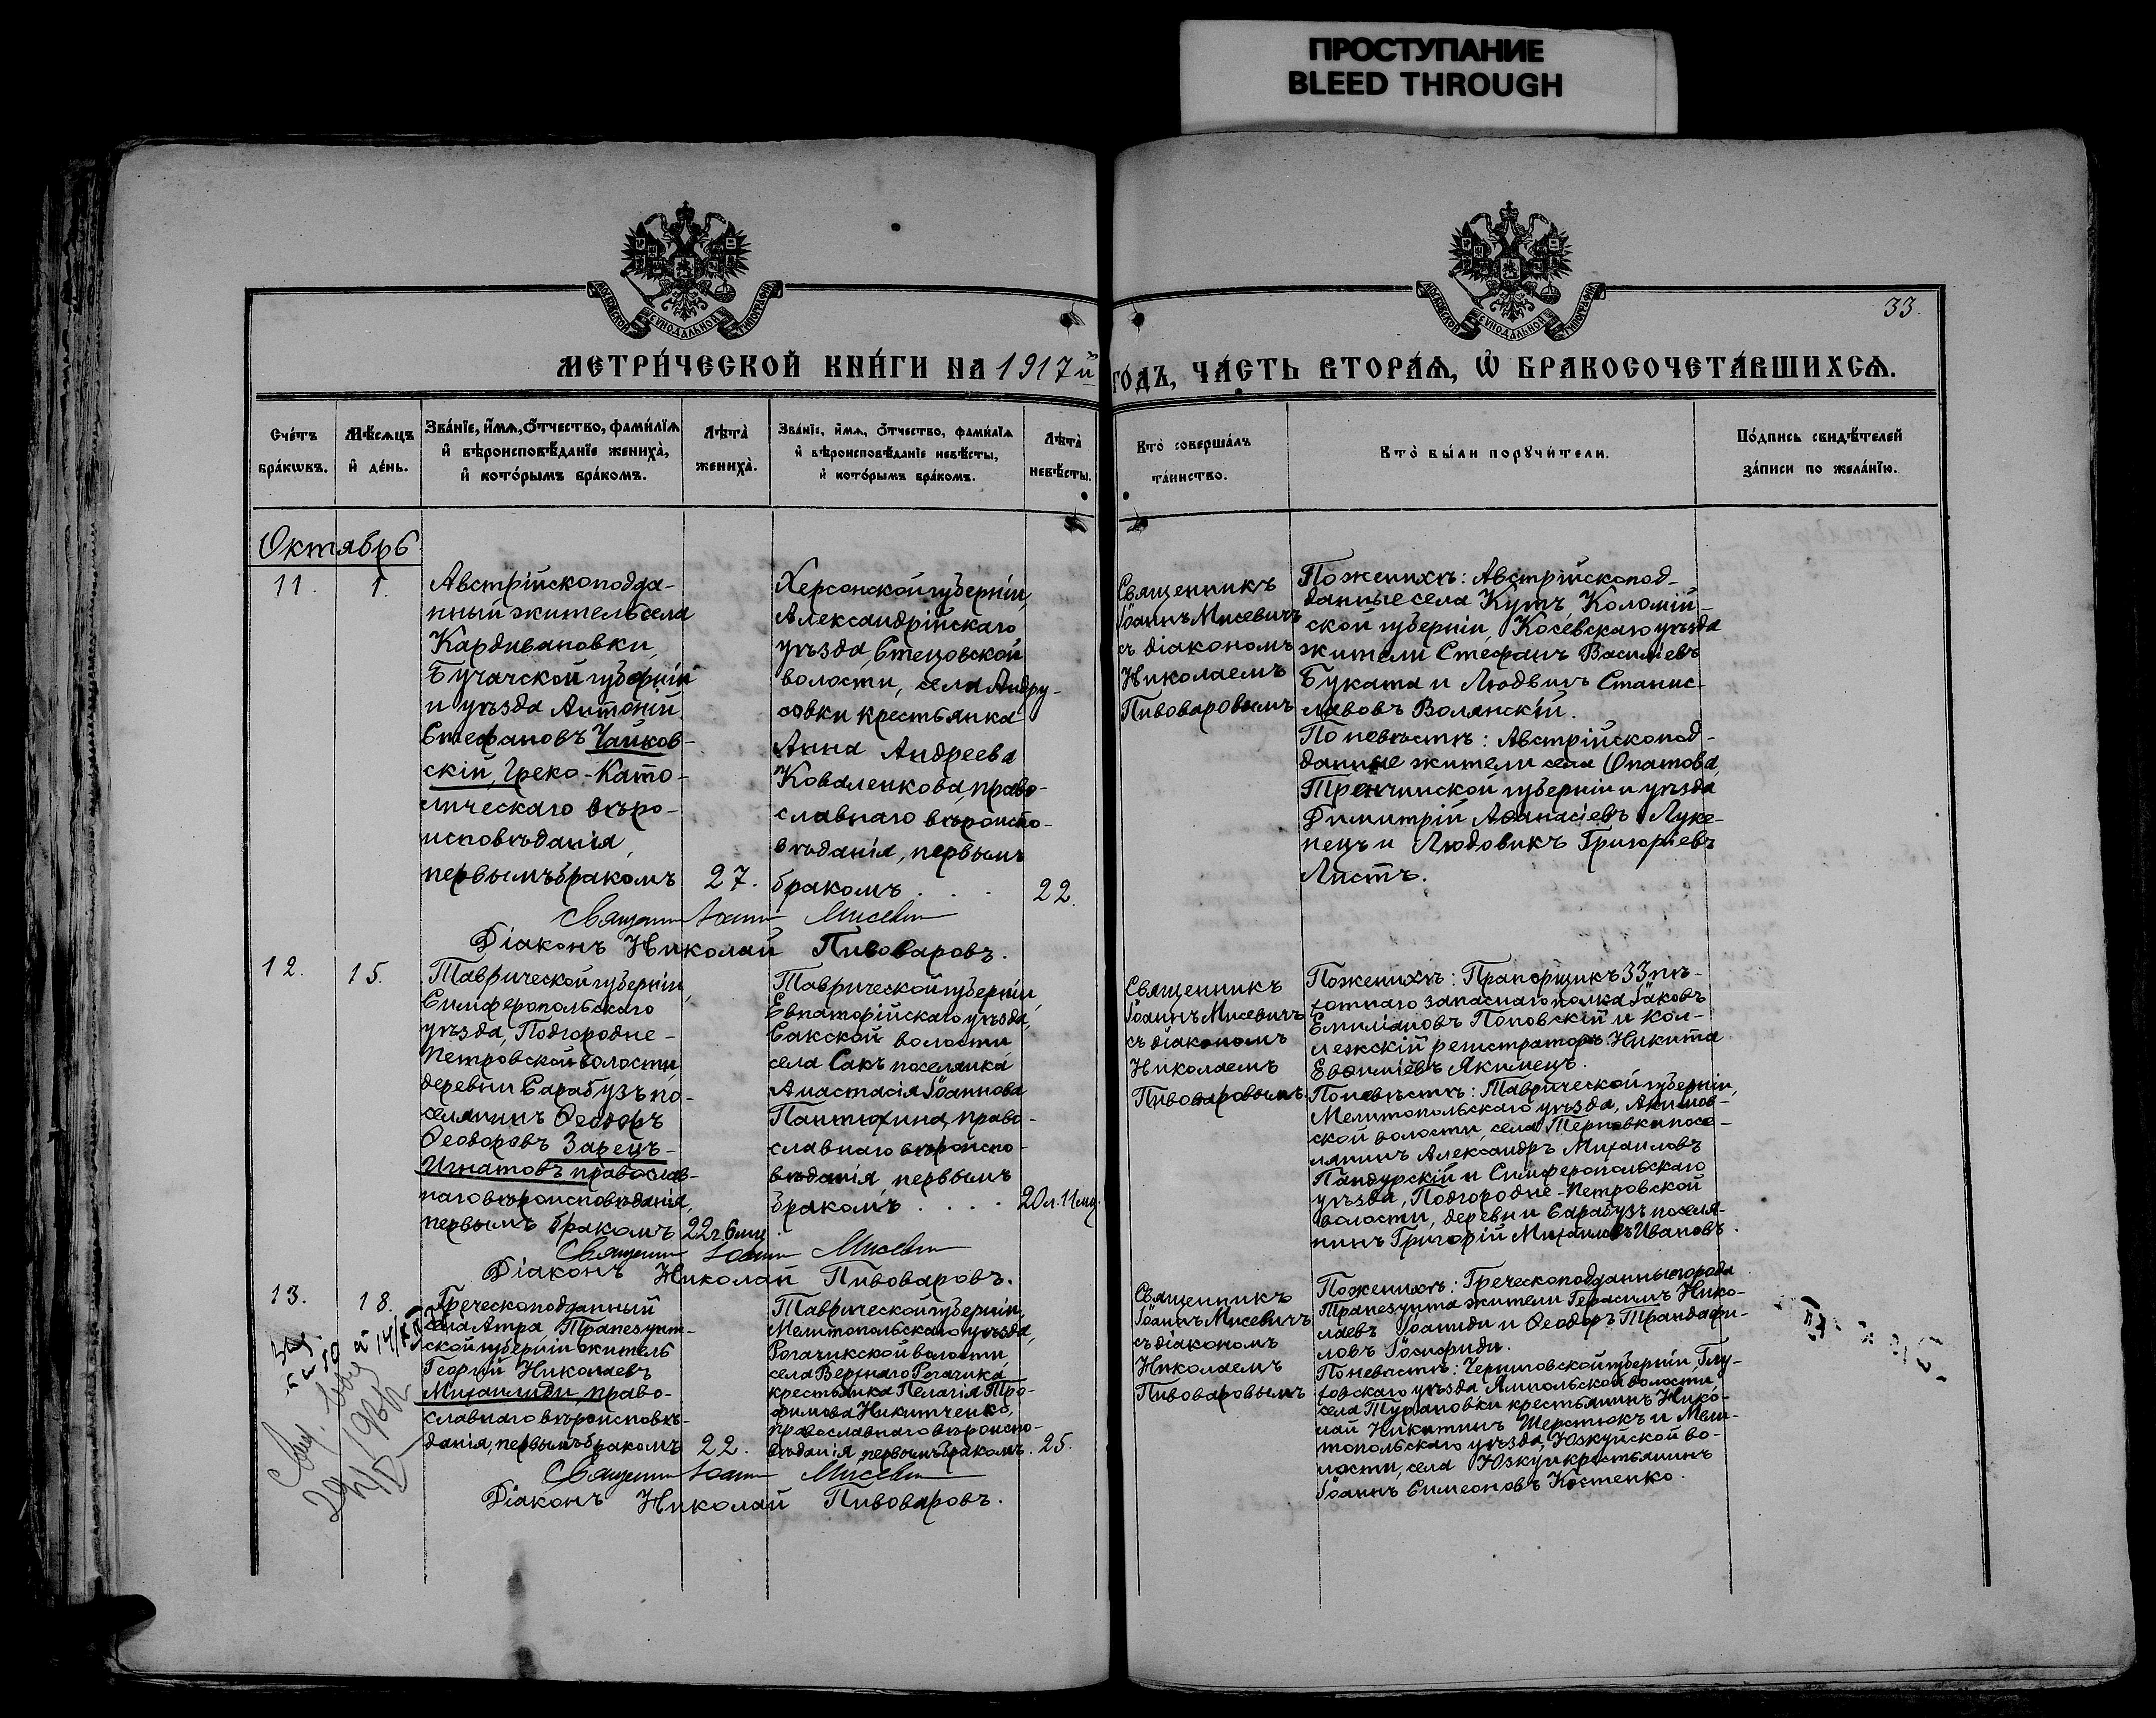 ПРОСТУПАНИЕ
BLEED THROUGH
МОСКОВСКОЙ СѴНОДАЛЬНОЙ ТИПОГРАФІИ
МОСКОВСКОЙ СѴНОДАЛЬНОЙ ТИПОГРАФІИ
33.
МЕТРИ́ЧЕСКОЙ КНИ́ГИ НА 1917й ГО́ДЪ, ЧА́СТЬ ВТОРА́Ѧ, Ѡ҆ БРАКОСОЧЕТА́ВШИХСѦ.
Сче́тъ
бра́кѡвъ.
Мѣ́сѧцъ
и҆ де́нь.
Зва́нїе, и҆́мѧ, ѻ҆́тчество, фами́лїѧ
и҆ вѣроисповѣ́данїе жениха̀,
и҆ кото́рымъ бра́комъ.
Лѣта̀
жениха̀.
Зва́нїе, и҆́мѧ, ѻ҆́тчество, фами́лїѧ
и҆ вѣроисповѣ́данїе невѣ́сты,
и҆ кото́рымъ бра́комъ.
Лѣта̀
невѣ́сты.
Кто̀ соверша́лъ
та́инство.
Кто̀ бы́ли порꙋчи́тели.
По́дпись свидѣ́телей
за́писи по жела́нїю.
Октябрь
11.
1.
Австрійскоподда-
нный житель села
Кардивановки,
Бучачской губерніи
и уѣзда Антоній
Стефановъ Чайков-
скій, Греко-Като-
лическаго вѣро-
исповѣданія,
первымъ бракомъ
27.
Херсонской губерніи,
Александрійскаго
уѣзда, Стецовской
волости, села Андру-
совки крестьянка
Анна Андреева
Коваленкова, право-
славнаго вѣроиспо-
вѣданія, первымъ
бракомъ . . .
22.
Священникъ
Іоаннъ Мисевичъ
съ діакономъ
Николаемъ
Пивоваровымъ
По женихѣ: Австрійскопод-
данные села Кутъ, Коломій-
ской губерніи, Косёвскаго уѣзда
жители Стефанъ Василіевъ
Буката и Людвигъ Станис-
лавовъ Волянскій.
По невѣстѣ: Австрійскопод-
данные жители села Опатова,
Тренчинской губерніи и уѣзда
Димитрій Аѳанасіевъ Луке-
нецъ и Людовикъ Григоріевъ
Листъ.
Священник Іоанн Мисевич
Діаконъ Николай Пивоваровъ.
12.
15.
Таврической губерніи,
Симферопольскаго
уѣзда, Подгородне-
Петровской волости,
деревни Сарабузъ по-
селянинъ Ѳеодоръ
Ѳеодоровъ Зарецъ-
Игнатовъ православ-
наго вѣроисповѣданія,
первымъ бракомъ
22г. 6мц.
Таврической губерніи,
Евпаторійскаго уѣзда,
Сакской волости
села Сакъ поселянка
Анастасія Іоаннова
Пантюхина, право-
славнаго вѣроиспо-
вѣданія, первымъ
бракомъ . . . .
20л. 11мц.
Священникъ
Іоаннъ Мисевичъ
съ діакономъ
Николаемъ
Пивоваровымъ.
По женихѣ: Прапорщикъ 33 пѣ-
хотнаго запаснаго полка Іаковъ
Емиліановъ Поповскій и Кол-
лежскій регистраторъ Никита
Евѳиміевъ Якимецъ.
По невѣстѣ: Таврической губерніи,
Мелитопольскаго уѣзда, Акимов-
ской волости, села Терновки посе-
лянинъ Александръ Михаиловъ
Пандурскій и Симферопольскаго
уѣзда, Подгородне-Петровской
волости, деревни Сарабузъ поселя-
нинъ Григорій Михаиловъ Ивановъ.
Священник Іоанн Мисевич
Діаконъ Николай Пивоваровъ.
13.
18.
Греческоподданный
села Атра, Трапезунт-
ской губерніи житель
Георгій Николаевъ
Михаилиди, право-
славнаго вѣроисповѣ-
данія, первымъ бракомъ
22.
Таврической губерніи,
Мелитопольскаго уѣзда,
Рогачикской волости
села Верхняго Рогачика
крестьянка Пелагія Тро-
фимова Никитченко,
православнаго вѣроиспо-
вѣданія, первымъ бракомъ.
25.
Священникъ
Іоаннъ Мисевичъ
съ діакономъ
Николаемъ
Пивоваровымъ
По женихѣ: Греческоподданные города
Трапезунта жители Герасимъ Нико-
лаевъ Іоаниди и Ѳеодоръ Трандафи-
ловъ Іосифиди.
По невѣстѣ: Черниговской губерніи, Глу-
ховскаго уѣзда Ямпольской волости
села Турановки крестьянинъ Нико-
лай Никитинъ Шерстюкъ и Мели-
топольскаго уѣзда, Юзкуйской во-
лости, села Юзкуи крестьянинъ
Іоаннъ Симеоновъ Костенко.
Священник Іоанн Мисевич
Діаконъ Николай Пивоваровъ.